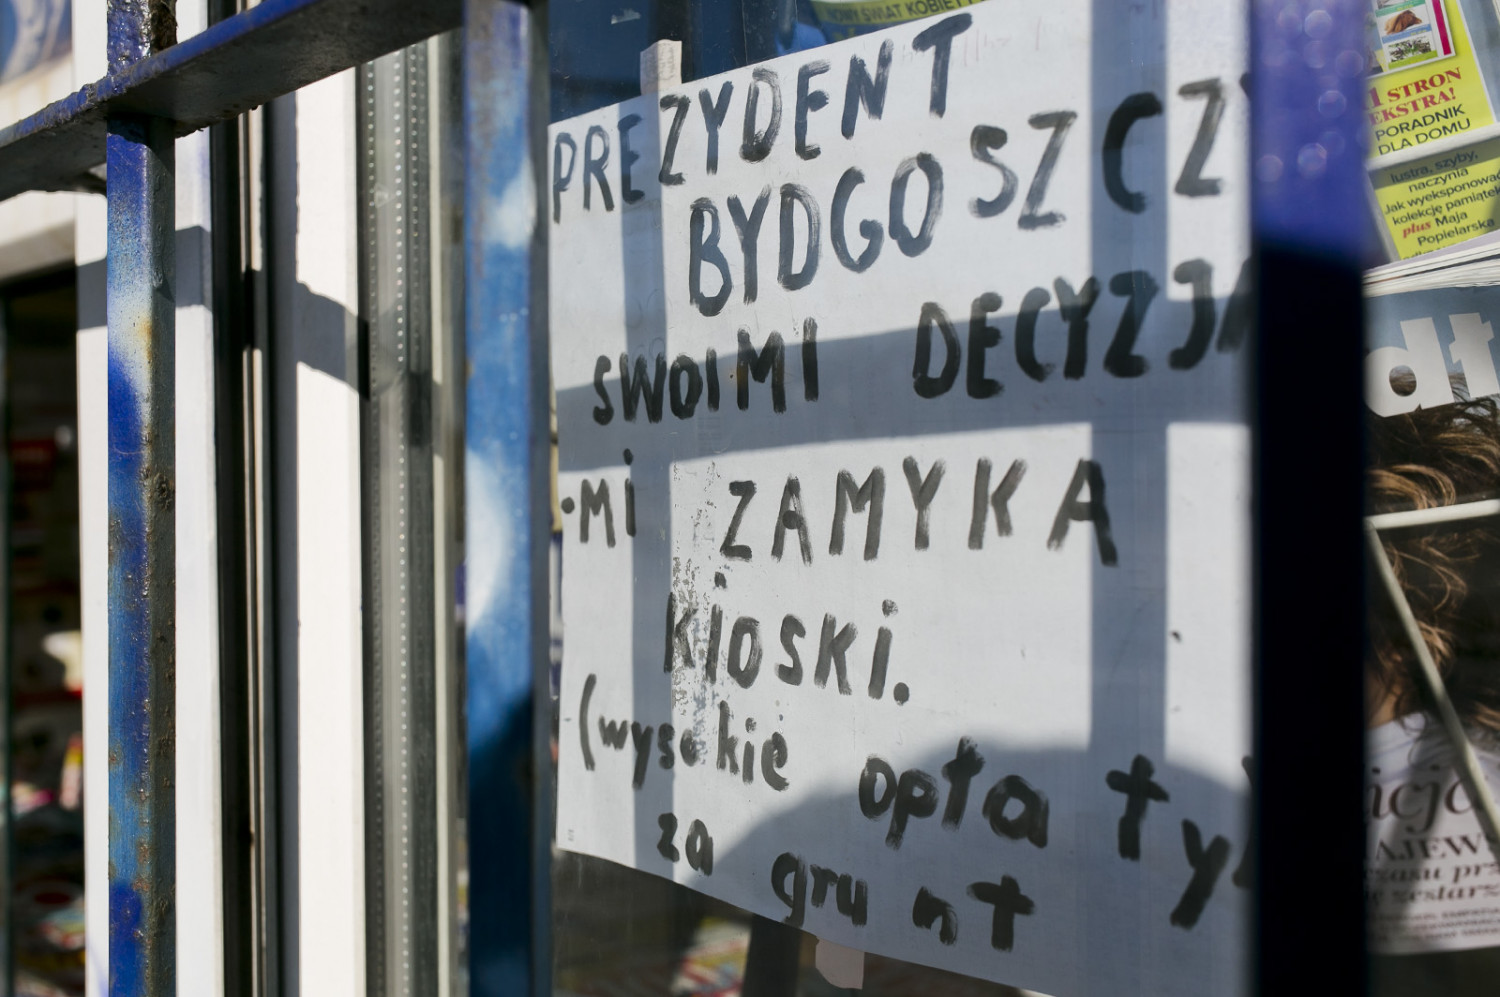 PREZYDENT
BYDGOSZCZY
SWOIMI DECYZJA
-MI ZAMYKA
KIOSKI.
(wysokie opłaty
za grunt
NOWY ŚWIAT KOBIET
STRON
EKSTRA!
PORADNIK
DLA DOMU
lustra, szyby,
naczynia
Jak wyeksponować
kolekcję pamiątek
plus Maja
Popielarska